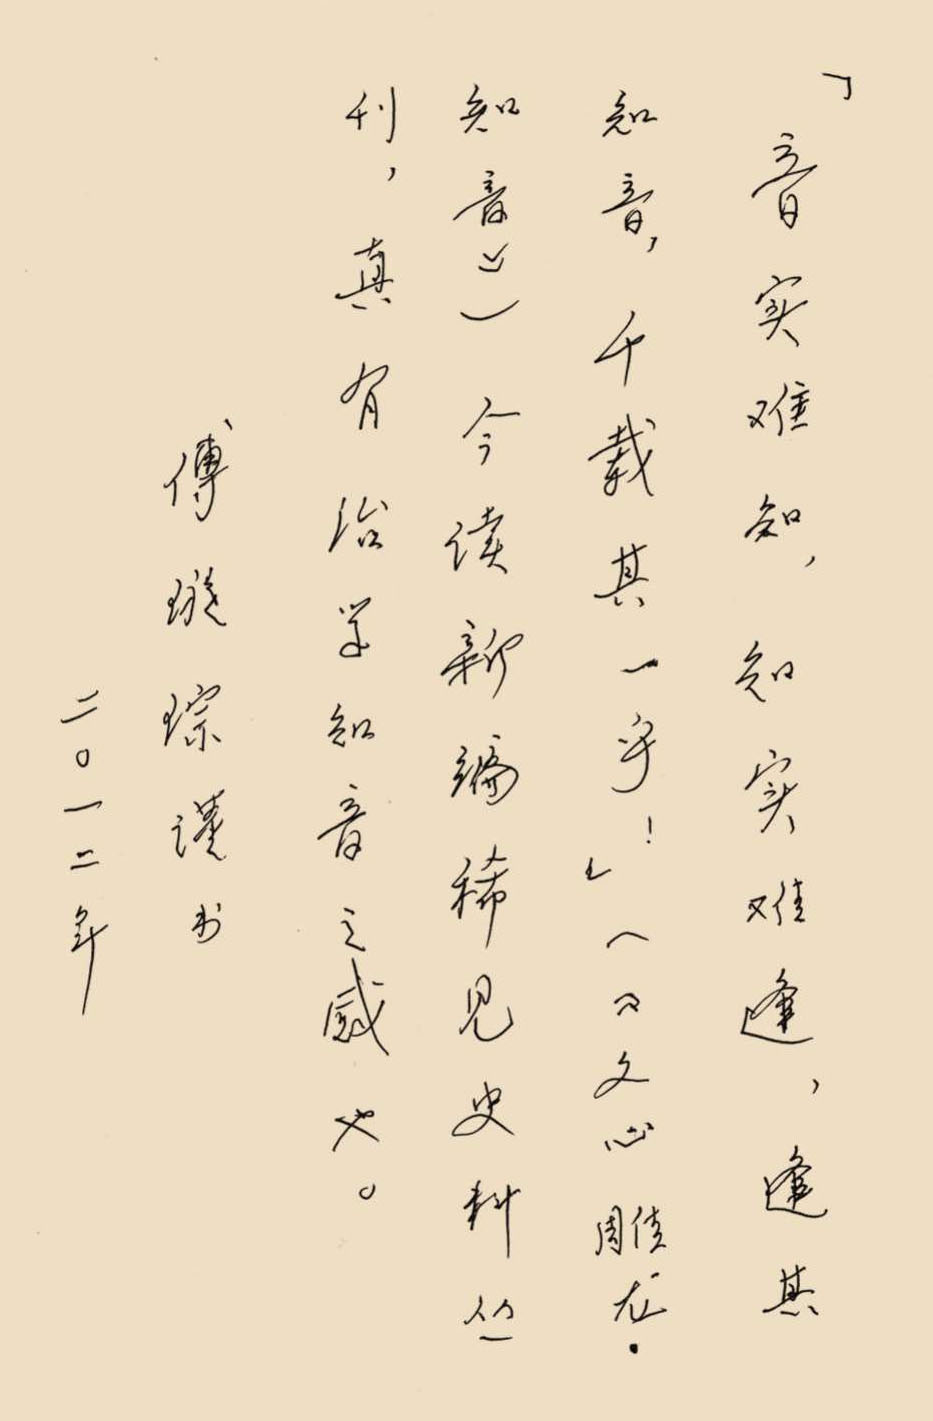 「音实难知，知实难逢，逢其
知音，千载其一乎！」（《文心雕龙·
知音》）今读新编稀见史料丛
刊，真有治学知音之感也。
傅璇琮谨书
二〇一二年